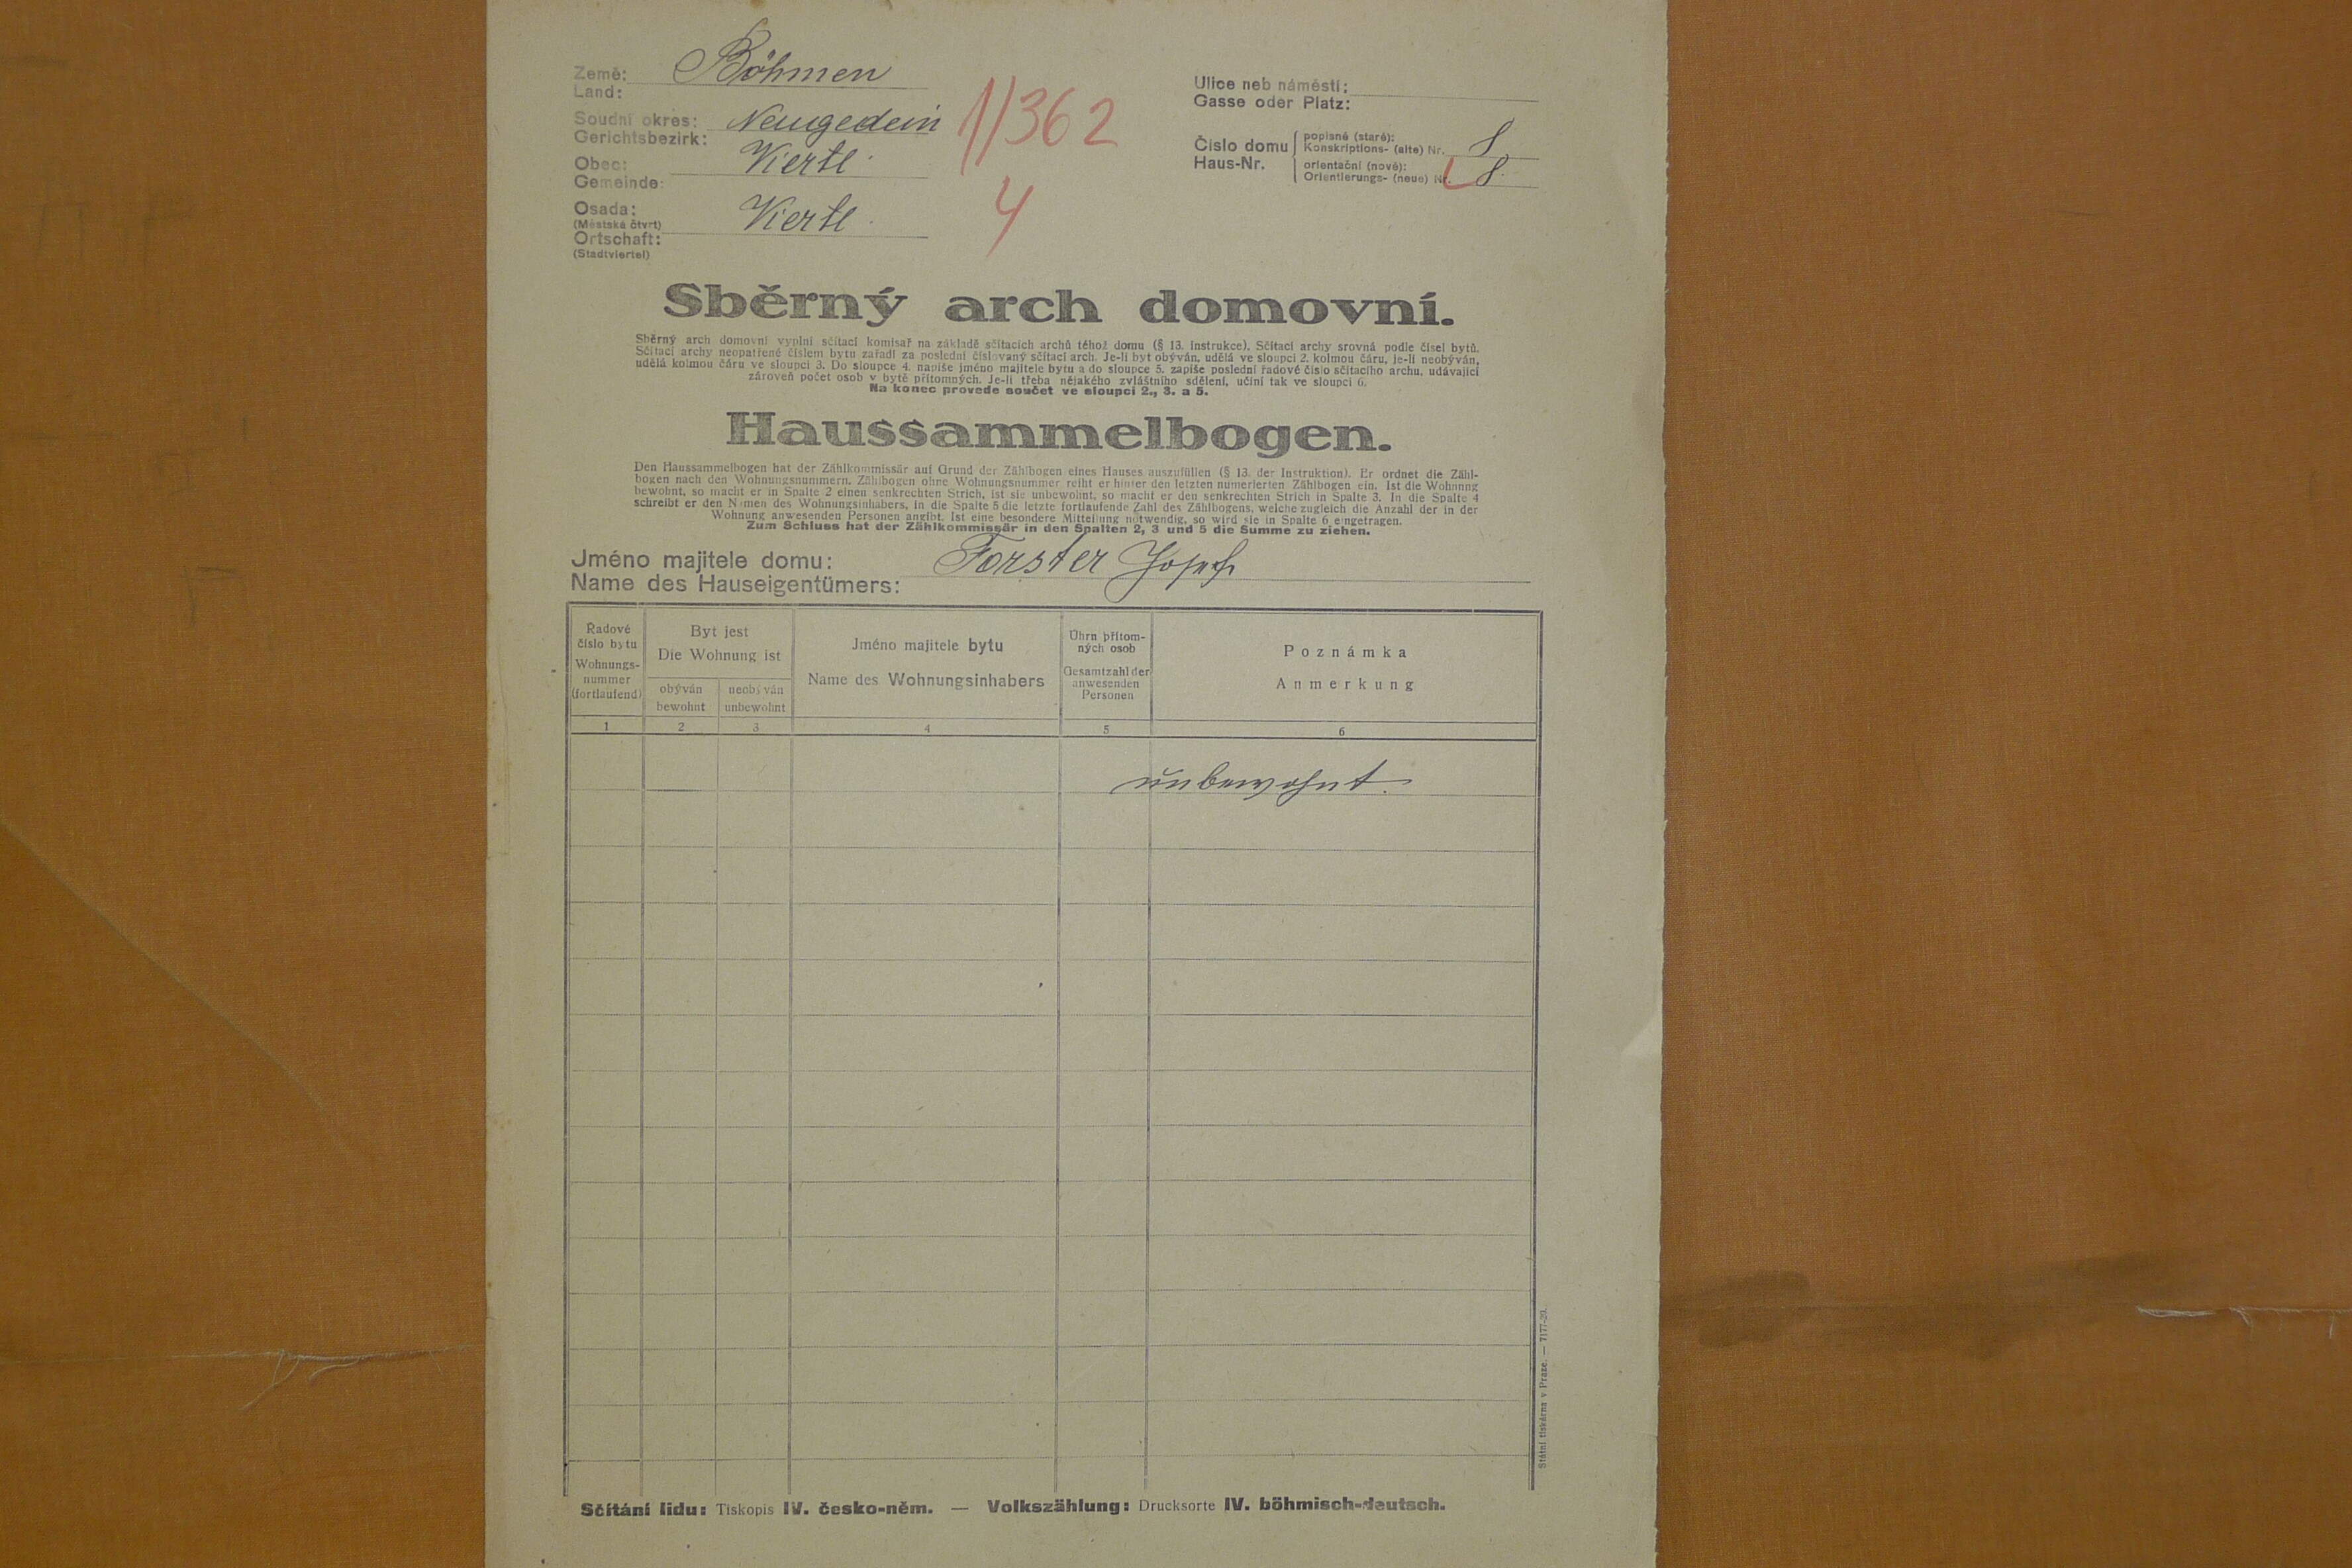 Země: Böhmen
Land:
Soudní okres: Neugedein
Gerichtsbezirk:
Obec: Viertl
Gemeinde:
Osada: Viertl
(Městská čtvrt)
Ortschaft:
(Stadtviertel)
1/362
4
Ulice neb náměstí:
Gasse oder Platz:
Číslo domu popisné (staré): 8
Haus-Nr. Konskriptions- (alte) Nr.
orientační (nové): 8
Orientierungs- (neue) Nr.
Sběrný arch domovní.
Sběrný arch domovní vyplní sčítací komisař na základě sčítacích archů téhož domu (§ 13. instrukce). Sčítací archy srovná podle čísel bytů.
Sčítací archy neopatřené číslem bytu zařadí za poslední číslovaný sčítací arch. Je-li byt obýván, udělá ve sloupci 2. kolmou čáru, je-li neobýván,
udělá kolmou čáru ve sloupci 3. Do sloupce 4. napíše jméno majitele bytu a do sloupce 5. zapíše poslední řadové číslo sčítacího archu, udávající
zároveň počet osob v bytě přítomných. Je-li třeba nějakého zvláštního sdělení, učiní tak ve sloupci 6.
Na konec provede součet ve sloupci 2., 3. a 5.
Haussammelbogen.
Den Haussammelbogen hat der Zählkommissär auf Grund der Zählbogen eines Hauses auszufüllen (§ 13. der Instruktion). Er ordnet die Zähl-
bogen nach den Wohnungsnummern. Zählbogen ohne Wohnungsnummer reiht er hinter den letzten numerierten Zählbogen ein. Ist die Wohnung
bewohnt, so macht er in Spalte 2 einen senkrechten Strich, ist sie unbewohnt, so macht er den senkrechten Strich in Spalte 3. In die Spalte 4
schreibt er den Namen des Wohnungsinhabers, in die Spalte 5 die letzte fortlaufende Zahl des Zählbogens, welche zugleich die Anzahl der in der
Wohnung anwesenden Personen angibt. Ist eine besondere Mitteilung notwendig, so wird sie in Spalte 6 eingetragen.
Zum Schluss hat der Zählkommissär in den Spalten 2, 3 und 5 die Summe zu ziehen.
Jméno majitele domu: Forster Josef
Name des Hauseigentümers:
Řadové číslo bytu
Wohnungs-nummer (fortlaufend)
Byt jest
Die Wohnung ist
obýván
bewohnt
neobýván
unbewohnt
Jméno majitele bytu
Name des Wohnungsinhabers
Úhrn přítom-ných osob
Gesamtzahl der anwesenden Personen
Poznámka
Anmerkung
1 2 3 4 5 6
unbewohnt.
Státní tiskárna v Praze. — 7177-20.
Sčítání lidu: Tiskopis IV. česko-něm. — Volkszählung: Drucksorte IV. böhmisch-deutsch.